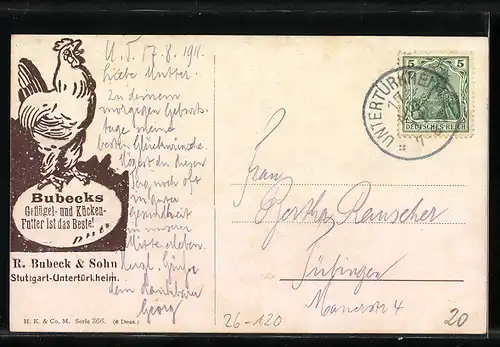 U. T. 17.8.1911.
Liebe Mutter.
Zu deinem
morgigen Geburts-
tage meine
besten Glückwünsche.
Mögest du diesen
Tag noch oft
in guter
Gesundheit
in unserer
Mitte erleben.
Herzl. Grüße
dein dankbarer
Georg
Bubecks
Geflügel- und Kücken-
Futter ist das Beste!
R. Bubeck & Sohn
Stuttgart-Untertürkheim.
H. K. & Co. M. Serie 366. (6 Dess.)
5 5
DEUTSCHES REICH
UNTERTÜRKHEIM
Frau
Bertha Rauscher
Tübingen
Mauerstr 4
26-120
20